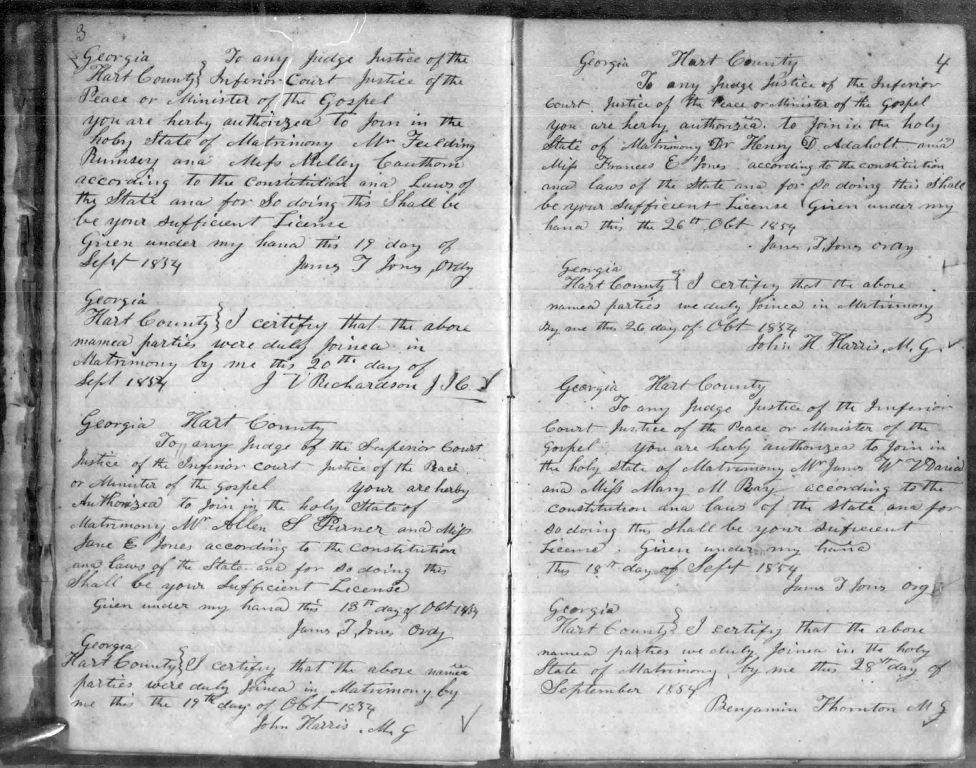 3
Georgia } To any Judge Justice of the
Hart County } Inferior Court Justice of the
Peace or Minister of the Gospel
you are herby authorized to Join in the
holy State of Matrimony Mr Feilding
Rumsey and Miss Milley Cauthorn
according to the constitution and Laws of
the State and for So doing this Shall be
be your Sufficient License
Given under my hand this 19 day of
Sept 1854 James T Jones, Ordy
Georgia
Hart County } I certify that the above
named parties were duly Joined in
Matrimony by me this 20th day of
Sept 1854 J V Richardson J I C
Georgia Hart County
To any Judge of the Superior Court
Justice of the Inferior court Justice of the Peace
or Minister of the gospel your are herby
Authorized to Join in the holy State of
Matrimony Mr Allen S Turner and Miss
Jane E Jones according to the constitution
and laws of the State and for so doing this
Shall be your Sufficient License
Given under my hand this 18th day of Obt 1854
James T, Jones Ordy
Georgia
Hart County } I certify that the above named
parties were duly Joined in Matrimony by
me this the 19th day of Obt 1854
John Harris, M, G
4
Georgia Hart County
To any Judge Justice of the Inferior
Court Justice of the Peace or Minister of the Gospel
you are herby authorized to Join in the holy
State of Matrimony Dr Henry D, Adaholt and
Miss Frances E Jones according to the constitution
and laws of the State and for so doing this Shall
be your Sufficient License Given under my
hand this the 26th Obt 1854
James, T, Jones ordy
Georgia
Hart County } I certify that the above
named parties we duly Joined in Matrimony
by me this 26 day of Obt 1854
John H Harris, M, G,
Georgia Hart County
To any Judge Justice of the Innferior
Court Justice of the Peace or Minister of the
Gospel you are herby authorized to Join in
the holy State of Matrimony Mr James W V David
and Miss Mary M Bay according to the
constitution and laws of the State and for
so doing this Shall be your Suficient
License. Given under my hand
this 18th day of Sept 1854
James T Jones Org
Georgia
Hart County } I certify that the above
named parties we duly Joined in the holy
State of Matrimony by me this 28th day of
September 1854
Benjamin Thornton M G